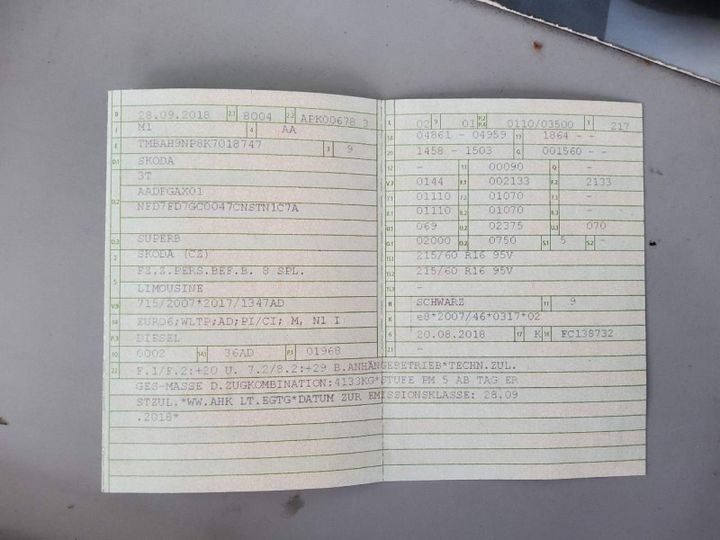 B 28.09.2018 2.1 8004 2.2 APK00678 3
J M1 4 AA
E TMBAH9NP8K7018747 3 9
D.1 SKODA
3T
D.2 AADFGAX01
NFD7FD7GC0047CNSTN1C7A
D.3 SUPERB
2 SKODA (CZ)
5 FZ.Z.PERS.BEF.B. 8 SPL.
LIMOUSINE
V.9 715/2007*2017/1347AD
14 EURO6;WLTP;AD;PI/CI; M, N1 I
P.3 DIESEL
10 0002 14.1 36AD P.1 01968
L 02 9 01 P.2 P.4 0110/03500 T 217
18 04861 - 04959 19 1864 - -
20 1458 - 1503 G 001560 - -
12 - 13 00090 Q -
V.7 0144 F.1 002133 F.2 2133
7.1 01110 7.2 01070 7.3 -
8.1 01110 8.2 01070 8.3 -
U.1 069 U.2 02375 U.3 070
O.1 02000 O.2 0750 S.1 5 S.2 -
15.1 215/60 R16 95V
15.2 215/60 R16 95V
15.3 -
R SCHWARZ 11 9
K e8*2007/46*0317*02
6 20.08.2018 17 K 16 FC138732
21 -
22 F.1/F.2:+20 U. 7.2/8.2:+29 B.ANHÄNGEBETRIEB*TECHN.ZUL.
GES-MASSE D.ZUGKOMBINATION:4133KG*STUFE PM 5 AB TAG ER
STZUL.*WW.AHK LT.EGTG*DATUM ZUR EMISSIONSKLASSE: 28.09
.2018*